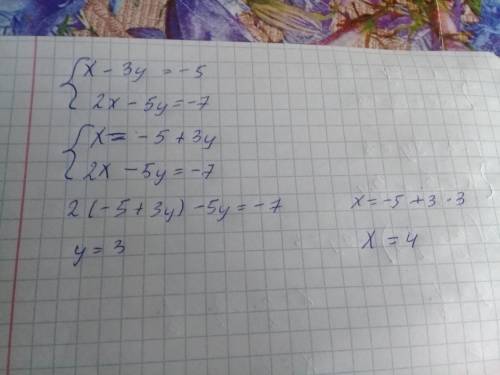 { x - 3y = -5
2x - 5y = -7
{ x = -5 + 3y
2x - 5y = -7
2(-5 + 3y) - 5y = -7
y = 3
x = -5 + 3 · 3
x = 4